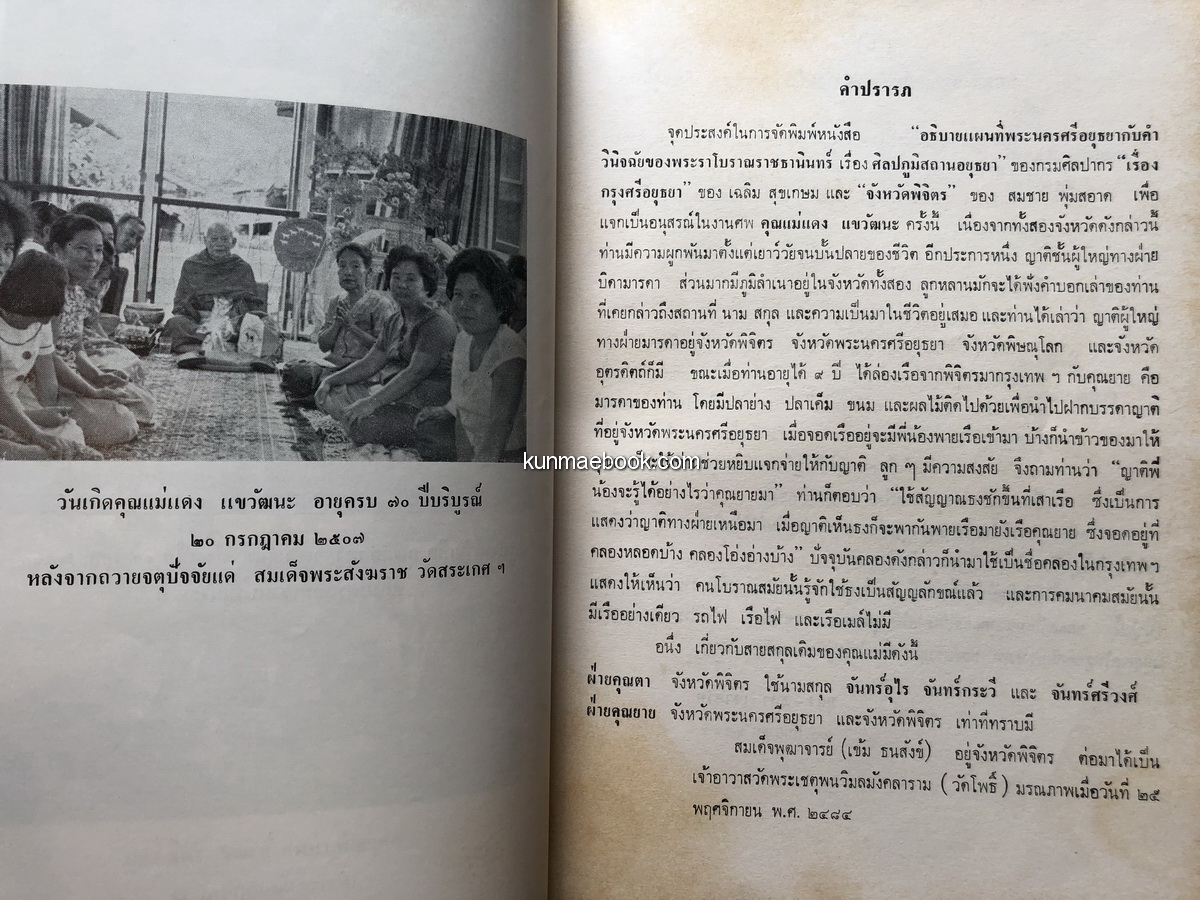 วันเกิดคุณแม่แดง แขวัฒนะ อายุครบ ๗๐ ปีบริบูรณ์
๒๐ กรกฎาคม ๒๕๐๗
หลังจากถวายจตุปัจจัยแด่ สมเด็จพระสังฆราช วัดสระเกศ ฯ
คำปรารภ
จุดประสงค์ในการจัดพิมพ์หนังสือ "อธิบายแผนที่พระนครศรีอยุธยากับคำ
วินิจฉัยของพระราโบราณราชธานินทร์ เรื่อง ศิลปภูมิสถานอยุธยา" ของกรมศิลปากร "เรื่อง
กรุงศรีอยุธยา" ของ เฉลิม สุขเกษม และ "จังหวัดพิจิตร" ของ สมชาย พุ่มสอาด เพื่อ
แจกเป็นอนุสรณ์ในงานศพ คุณแม่แดง แขวัฒนะ ครั้งนี้ เนื่องจากทั้งสองจังหวัดดังกล่าวนี้
ท่านมีความผูกพันมาตั้งแต่เยาว์วัยจนบั้นปลายของชีวิต อีกประการหนึ่ง ญาติชั้นผู้ใหญ่ทางฝ่าย
บิดามารดา ส่วนมากมีภูมิลำเนาอยู่ในจังหวัดทั้งสอง ลูกหลานมักจะได้ฟังคำบอกเล่าของท่าน
ที่เคยกล่าวถึงสถานที่ นาม สกุล และความเป็นมาในชีวิตอยู่เสมอ และท่านได้เล่าว่า ญาติผู้ใหญ่
ทางฝ่ายมารดาอยู่จังหวัดพิจิตร จังหวัดพระนครศรีอยุธยา จังหวัดพิษณุโลก และจังหวัด
อุตรดิตถ์ก็มี ขณะเมื่อท่านอายุได้ ๙ ปี ได้ล่องเรือจากพิจิตรมากรุงเทพ ฯ กับคุณยาย คือ
มารดาของท่าน โดยมีปลาย่าง ปลาเค็ม ขนม และผลไม้ติดไปด้วยเพื่อนำไปฝากบรรดาญาติ
ที่อยู่จังหวัดพระนครศรีอยุธยา เมื่อจอดเรืออยู่จะมีพี่น้องพายเรือเข้ามา บ้างก็นำข้าวของมาให้
ช่วยหยิบแจกจ่ายให้กับญาติ ลูก ๆ มีความสงสัย จึงถามท่านว่า "ญาติพี่
น้องจะรู้ได้อย่างไรว่าคุณยายมา" ท่านก็ตอบว่า "ใช้สัญญาณธงชักขึ้นที่เสาเรือ ซึ่งเป็นการ
แสดงว่าญาติทางฝ่ายเหนือมา เมื่อญาติเห็นธงก็จะพากันพายเรือมายังเรือคุณยาย ซึ่งจอดอยู่ที่
คลองหลอดบ้าง คลองโอ่งอ่างบ้าง" ปัจจุบันคลองดังกล่าวก็นำมาใช้เป็นชื่อคลองในกรุงเทพ ฯ
แสดงให้เห็นว่า คนโบราณสมัยนั้นรู้จักใช้ธงเป็นสัญญลักขณ์แล้ว และการคมนาคมสมัยนั้น
มีเรืออย่างเดียว รถไฟ เรือไฟ และเรือเมล์ไม่มี
อนึ่ง เกี่ยวกับสายสกุลเดิมของคุณแม่มีดังนี้
ฝ่ายคุณตา จังหวัดพิจิตร ใช้นามสกุล จันทร์อุไร จันทร์กระวี และ จันทร์ศรีวงศ์
ฝ่ายคุณยาย จังหวัดพระนครศรีอยุธยา และจังหวัดพิจิตร เท่าที่ทราบมี
สมเด็จพุฒาจารย์ (เข้ม ธนสังข์) อยู่จังหวัดพิจิตร ต่อมาได้เป็น
เจ้าอาวาสวัดพระเชตุพนวิมลมังคลาราม (วัดโพธิ์) มรณภาพเมื่อวันที่ ๒๕
พฤศจิกายน พ.ศ. ๒๔๘๔
kunmaebook.com